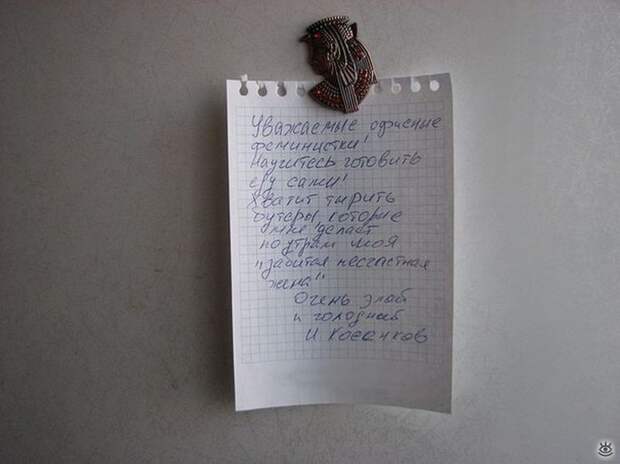 Уважаемые офисные
феминистки!
Научитесь готовить
еду сами!
Хватит тырить
бутеры, которые
мне делает
по утрам моя
"забитая несчастная
жена!"
Очень злой
и голодный
И